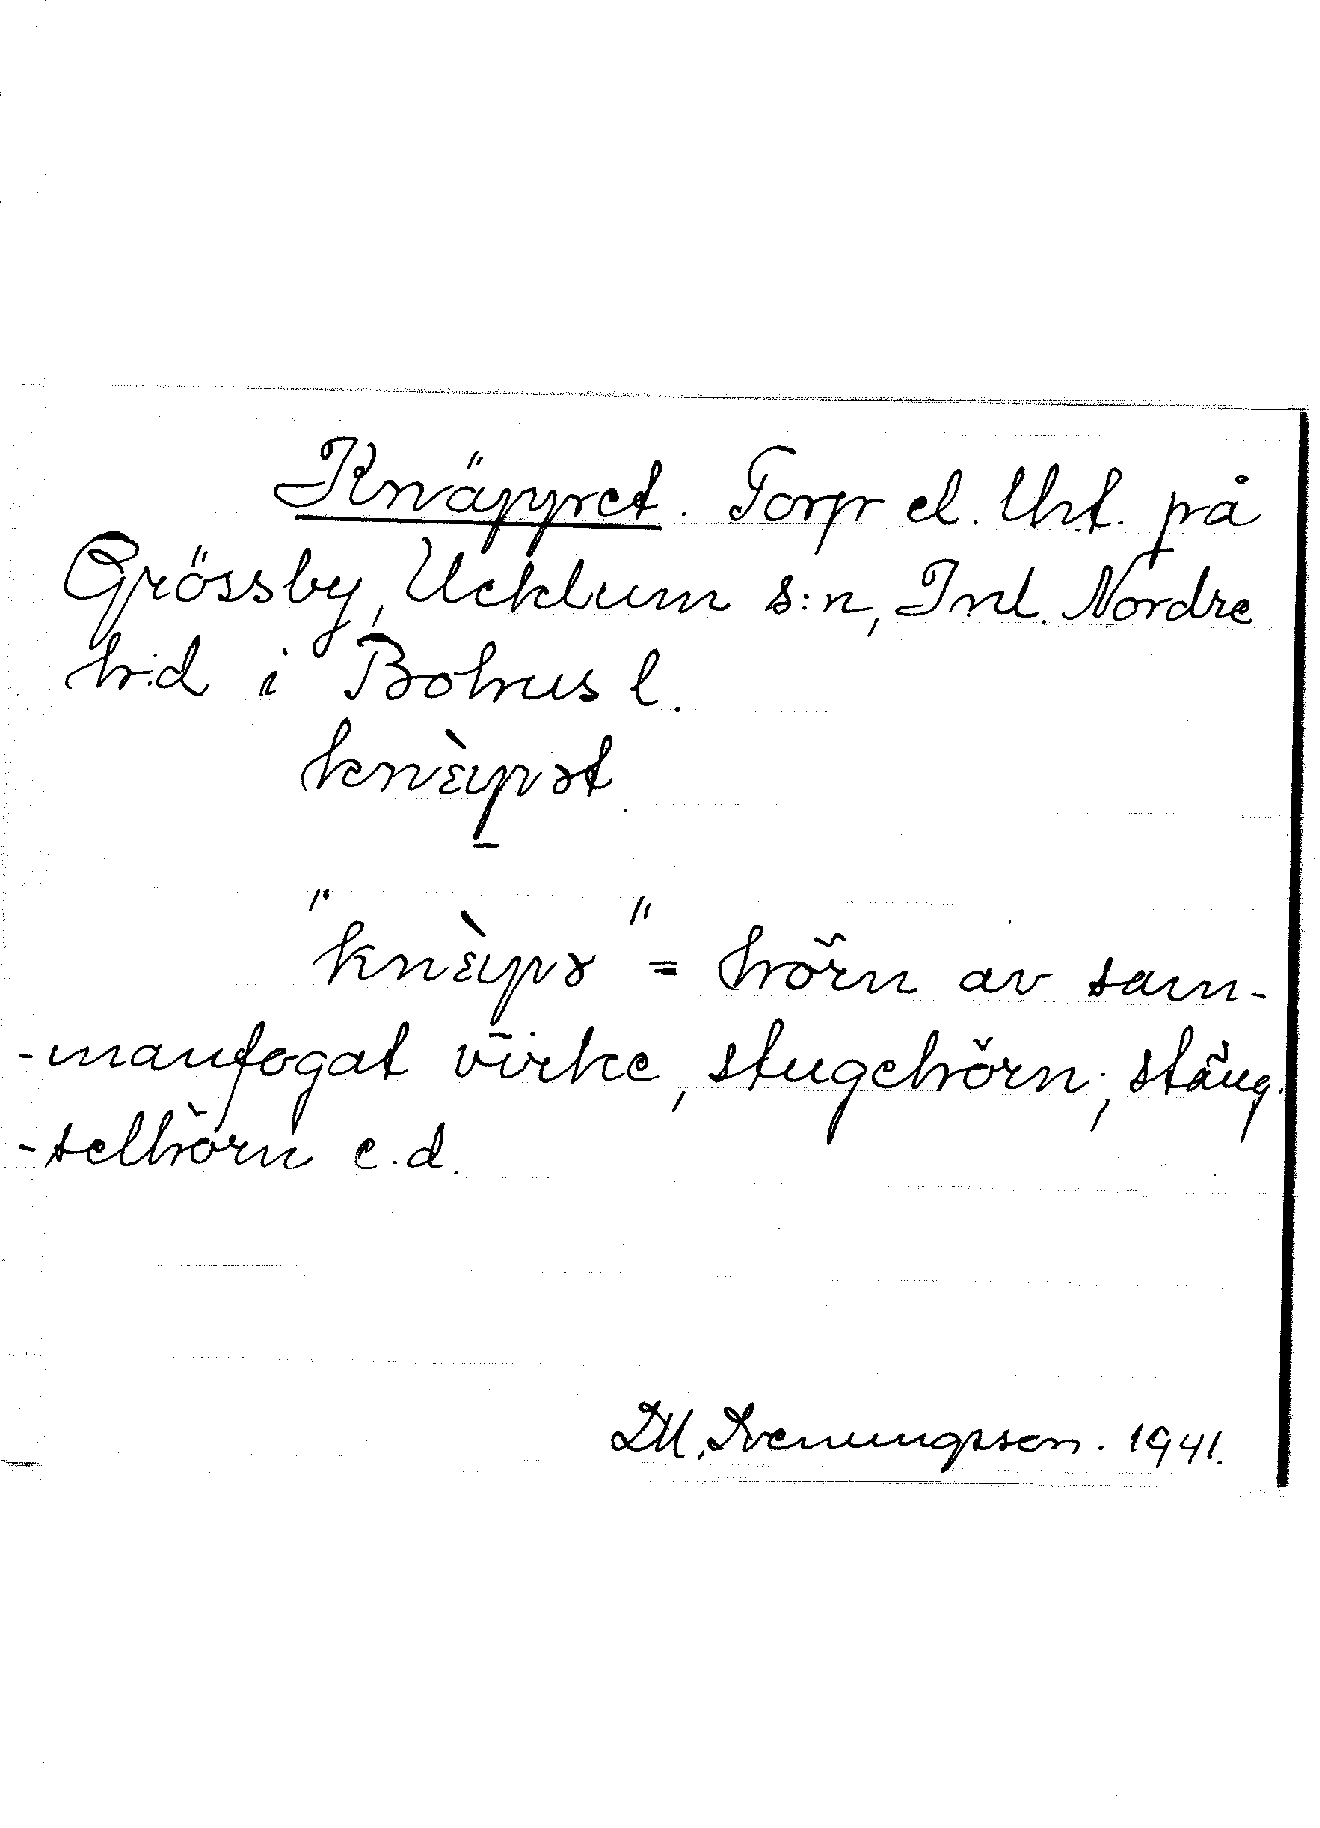 Knäppret. Torp el. lht. på
Grössby, Ucklum s:n, Inl. Nordre
h:d i Bohusl.
knὲp̠ət
"knὲp̠ə" = hörn av sam-
-manfogat virke, stugehörn, stäng-
-selhörn e.d.
D.M. Svenungsson. 1941.